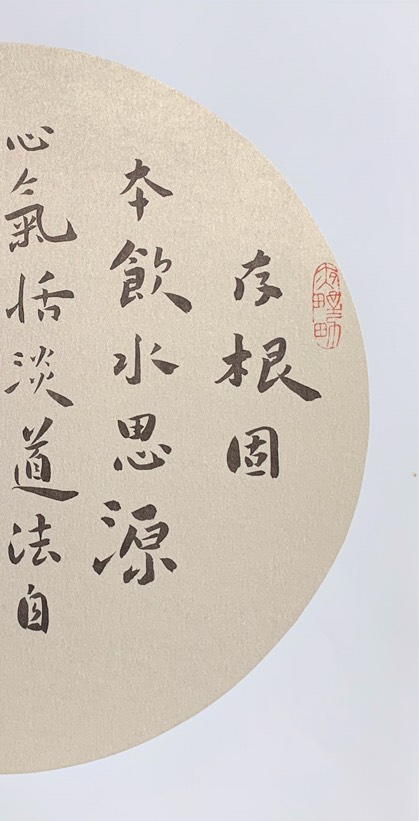 存根固
本飲水思源
心氣恬淡道法自